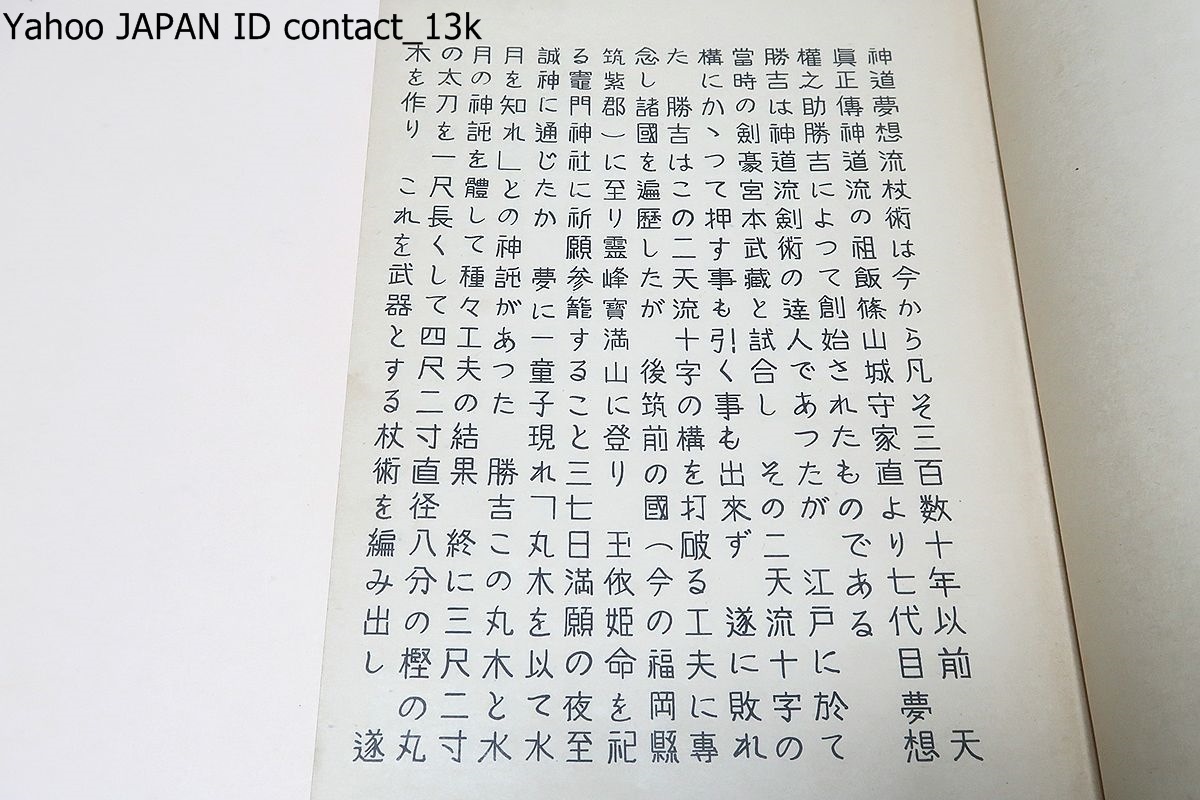 Yahoo JAPAN ID contact_13k
神道夢想流杖術は今から凡そ三百数十年以前　天
眞正傳神道流の祖飯篠山城守家直より七代目夢想
權之助勝吉によつて創始されたものである
勝吉は神道流劍術の達人であつたが　江戸に於て
當時の劍豪宮本武藏と試合し　その二天流十字の
構にかゝつて押す事も引く事も出來ず　遂に敗れ
た　勝吉はこの二天流十字の構を打破る工夫に專
念し諸國を遍歴したが　後筑前の國（今の福岡縣
筑紫郡）に至り靈峰寶満山に登り　玉依姫命を祀
る竈門神社に祈願参籠すること三七日満願の夜至
誠神に通じたか　夢に一童子現れ「丸木を以て水
月を知れ」との神託があつた　勝吉この丸木と水
月の神託を體して種々工夫の結果　終に三尺二寸
の太刀を一尺長くして四尺二寸直径八分の樫の丸
木を作り　これを武器とする杖術を編み出し　遂